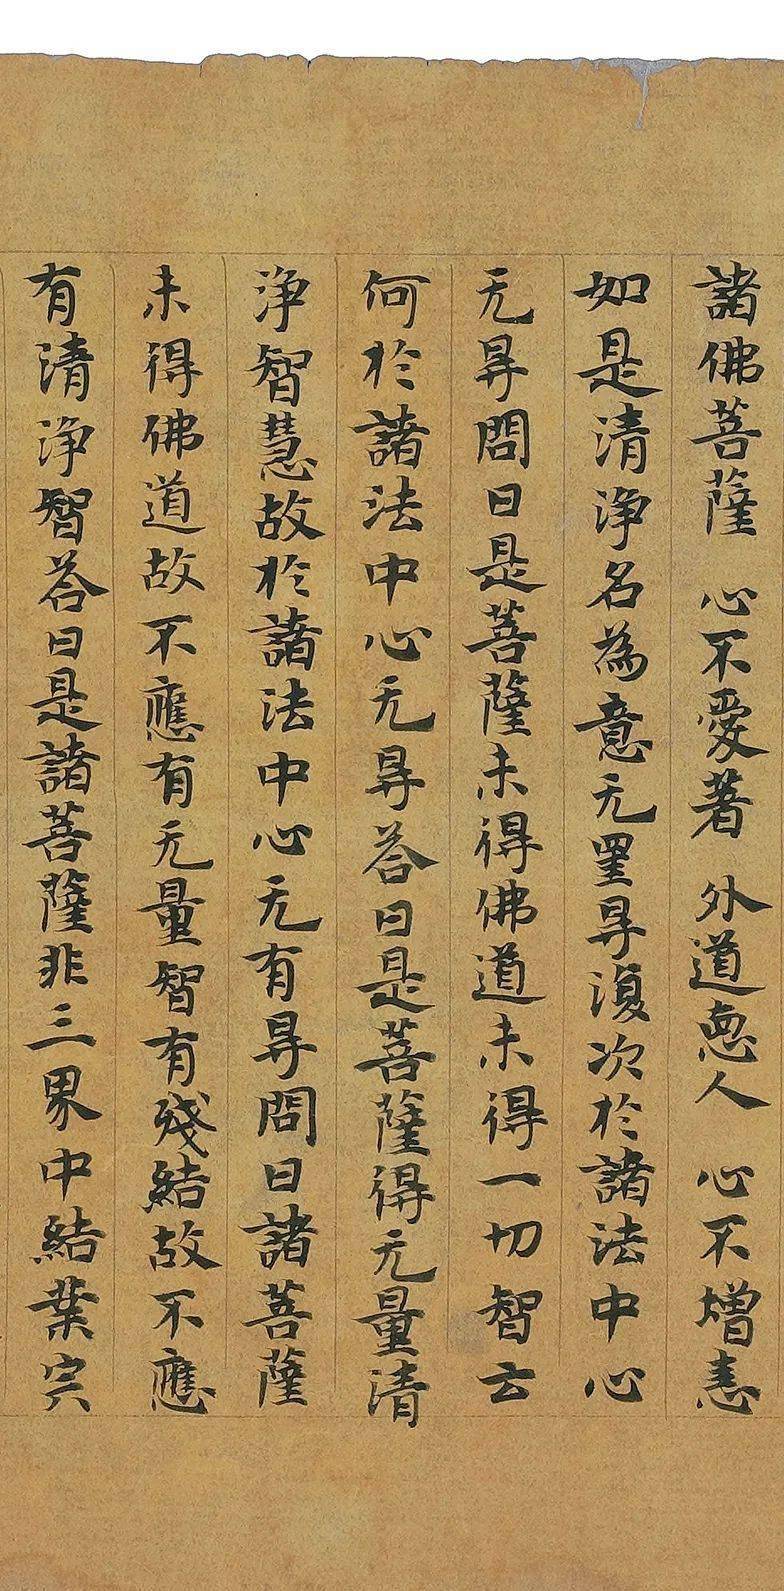 諸佛菩薩 心不愛著 外道惡人 心不增恚
如是清淨名為意无罣㝵復次於諸法中心
无㝵問曰是菩薩未得佛道未得一切智云
何於諸法中心无㝵荅曰是菩薩得无量清
淨智慧故於諸法中心无有㝵問曰諸菩薩
未得佛道故不應有无量智有殘結故不應
有清淨智荅曰是諸菩薩非三界中結業宍